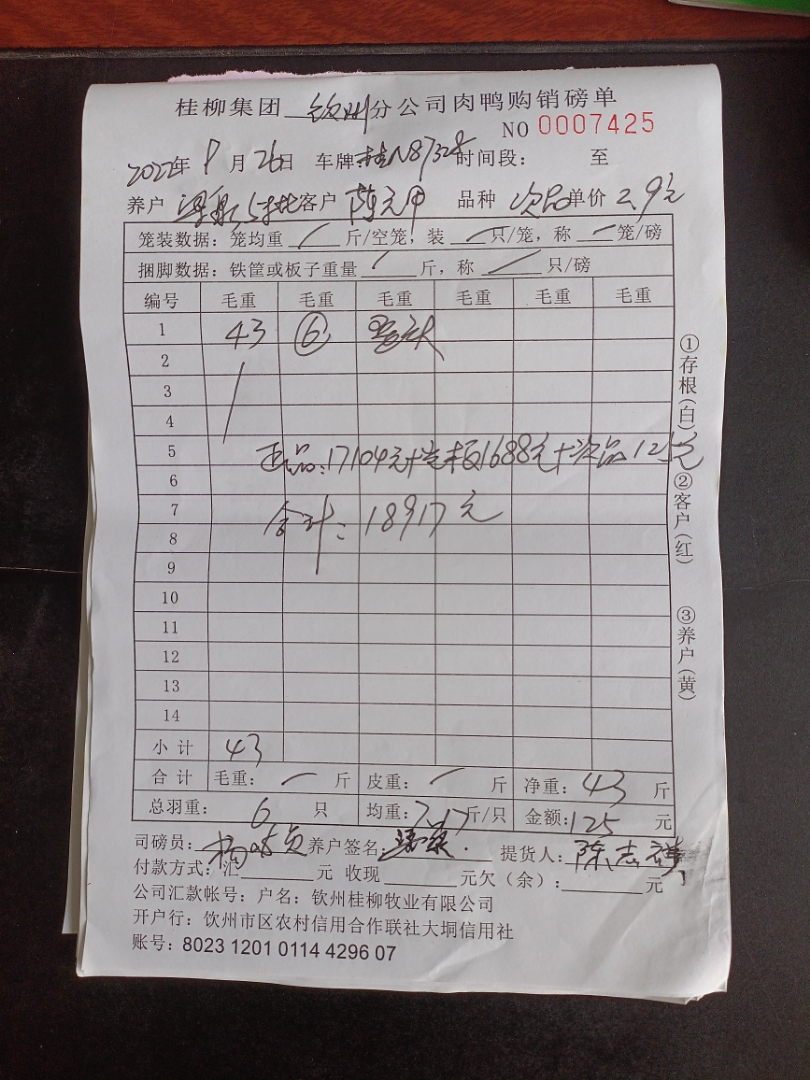 桂柳集团 钦州 分公司肉鸭购销磅单
NO 0007425
2022年 9 月 26日 车牌 桂N8732 时间段: 至
养户 5批 客户 陈元甲 品种 次品 单价 2.9元
笼装数据: 笼均重 / 斤/空笼, 装 / 只/笼, 称 / 笼/磅
捆脚数据: 铁筐或板子重量 / 斤, 称 / 只/磅
编号 毛重 毛重 毛重 毛重 毛重 毛重
1 43 ⑥
2
3
4
5 正品:17104元+ 1688元+次品125元
6
7 合计:18917元
8
9
10
11
12
13
14
小计 43
合计 毛重: / 斤 皮重: / 斤 净重: 43 斤
总羽重: 6 只 均重: 7.17 斤/只 金额: 125 元
司磅员: 杨 养户签名: 提货人: 陈志
付款方式: 汇 元 收现 元欠(余): 元
公司汇款帐号: 户名: 钦州桂柳牧业有限公司
开户行: 钦州市区农村信用合作联社大垌信用社
账号: 8023 1201 0114 4296 07
①存根(白)
②客户(红)
③养户(黄)